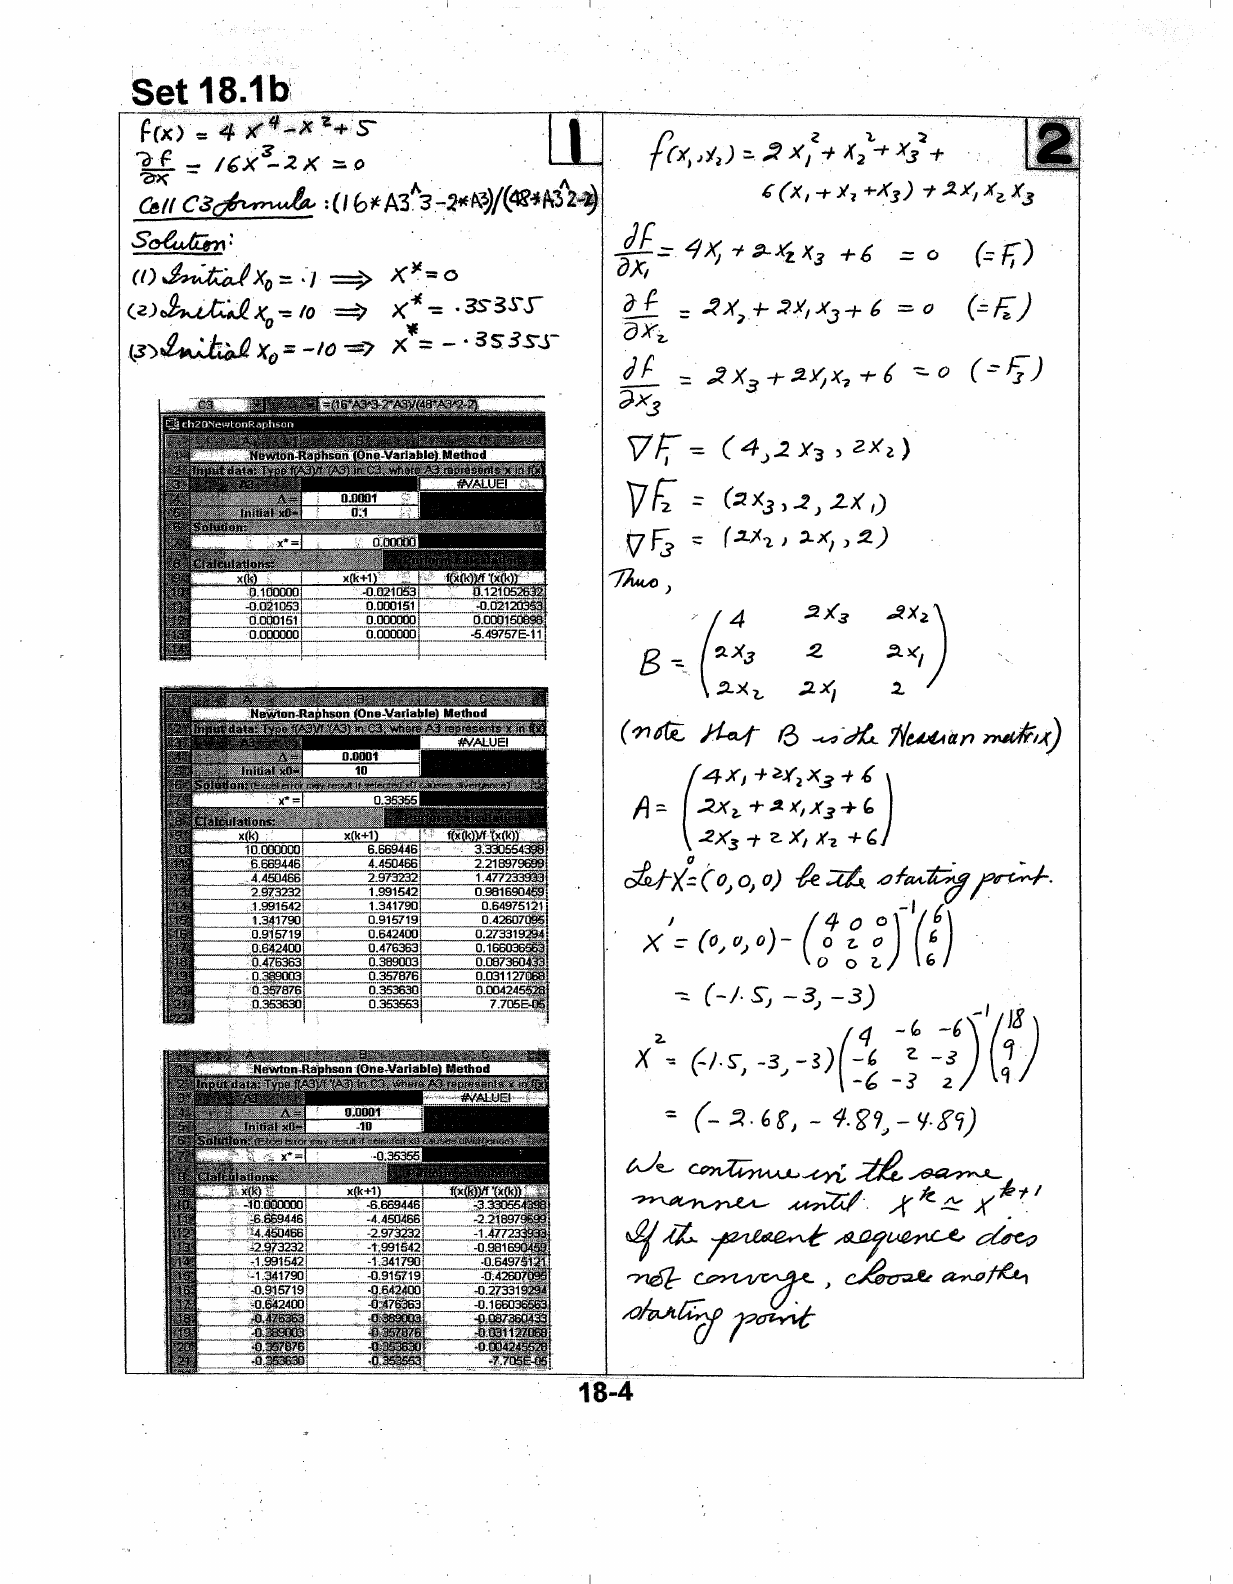 Set 18.1b
1
f(x) = 4x⁴ - x² + 5
∂f/∂x = 16x³ - 2x = 0
Cell C3 formula : (16*A3^3-2*A3)/(48*A3^2-2)
Solution:
(1) Initial x₀ = .1 ⟹ x* = 0
(2) Initial x₀ = 10 ⟹ x* = .35355
(3) Initial x₀ = -10 ⟹ x* = -.35355
C3 =(16*A3^3-2*A3)/(48*A3^2-2)
ch20NewtonRaphson
Newton-Raphson (One-Variable) Method
Input data: Type f(A3)/f '(A3) in C3, where A3 represents x in f(x)
#VALUE!
Δ = 0.0001
Initial x0= 0.1
Solution:
x*= 0.00000
Calculations:
x(k) x(k+1) f(x(k))/f '(x(k))
0.100000 -0.021053 0.121052632
-0.021053 0.000151 -0.02120353
0.000151 0.000000 0.000150898
0.000000 0.000000 -5.49757E-11
A B C
Newton-Raphson (One-Variable) Method
Input data: Type f(A3)/f '(A3) in C3, where A3 represents x in f(x)
#VALUE!
Δ = 0.0001
Initial x0= 10
Solution: (Excel error may result if selected x0 causes divergence)
x*= 0.35355
Calculations:
x(k) x(k+1) f(x(k))/f '(x(k))
10.000000 6.669446 3.330554398
6.669446 4.450466 2.218979699
4.450466 2.973232 1.477233933
2.973232 1.991542 0.981690459
1.991542 1.341790 0.64975121
1.341790 0.915719 0.42607095
0.915719 0.642400 0.273319294
0.642400 0.476363 0.166036563
0.476363 0.389003 0.087360433
0.389003 0.357876 0.031127068
0.357876 0.353630 0.004245528
0.353630 0.353553 7.705E-05
A B C
Newton-Raphson (One-Variable) Method
Input data: Type f(A3)/f '(A3) in C3, where A3 represents x in f(x)
#VALUE!
Δ = 0.0001
Initial x0= -10
Solution: (Excel error may result if selected x0 causes divergence)
x*= -0.35355
Calculations:
x(k) x(k+1) f(x(k))/f '(x(k))
-10.000000 -6.669446 -3.330554398
-6.669446 -4.450466 -2.218979699
-4.450466 -2.973232 -1.477233933
-2.973232 -1.991542 -0.981690459
-1.991542 -1.341790 -0.64975121
-1.341790 -0.915719 -0.42607095
-0.915719 -0.642400 -0.273319294
-0.642400 -0.476363 -0.166036563
-0.476363 -0.389003 -0.087360433
-0.389003 -0.357876 -0.031127068
-0.357876 -0.353630 -0.004245528
-0.353630 -0.353553 -7.705E-05
2
f(x₁,x₂) = 2x₁² + x₂² + x₃² +
6(x₁ + x₂ + x₃) + 2x₁x₂x₃
∂f/∂x₁ = 4x₁ + 2x₂x₃ + 6 = 0 (= F₁)
∂f/∂x₂ = 2x₂ + 2x₁x₃ + 6 = 0 (= F₂)
∂f/∂x₃ = 2x₃ + 2x₁x₂ + 6 = 0 (= F₃)
∇F₁ = (4, 2x₃, 2x₂)
∇F₂ = (2x₃, 2, 2x₁)
∇F₃ = (2x₂, 2x₁, 2)
Thus,
4 2x₃ 2x₂
B = 2x₃ 2 2x₁
2x₂ 2x₁ 2
(note that B is the Hessian matrix)
4x₁ + 2x₂x₃ + 6
A = 2x₂ + 2x₁x₃ + 6
2x₃ + 2x₁x₂ + 6
Let X⁰ = (0, 0, 0) be the starting point.
X¹ = (0, 0, 0) - (4 0 0 / 0 2 0 / 0 0 2)⁻¹ (6 / 6 / 6)
= (-1.5, -3, -3)
X² = (-1.5, -3, -3) (4 -6 -6 / -6 2 -3 / -6 -3 2)⁻¹ (18 / 9 / 9)
= (-2.68, -4.89, -4.89)
We continue in the same
manner until X^k ≃ X^k+1.
If the present sequence does
not converge, choose another
starting point
18-4